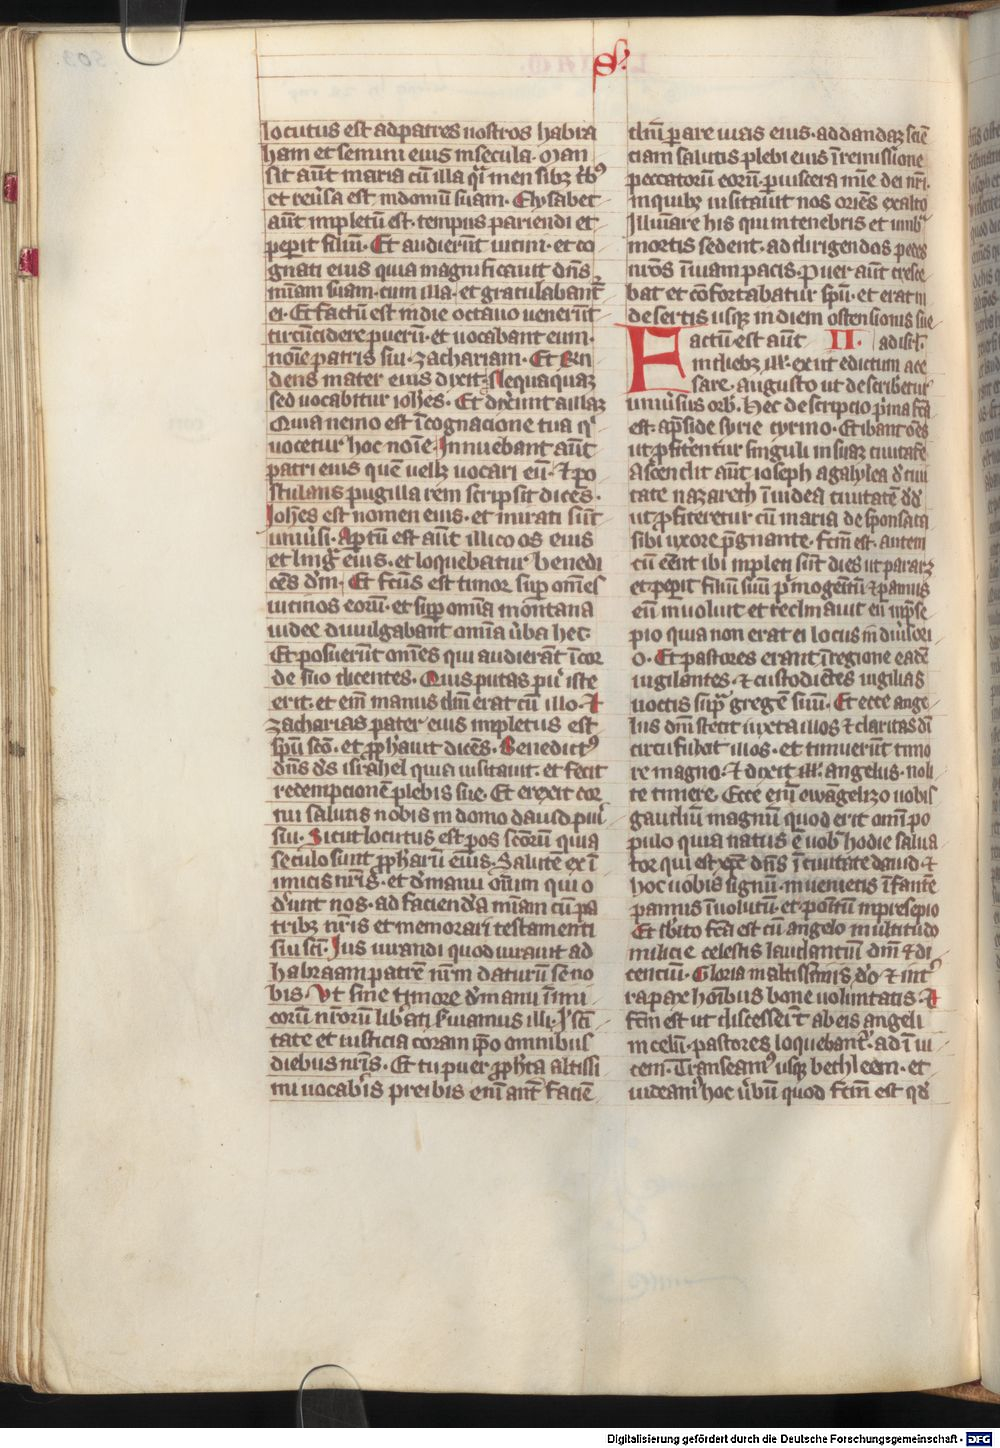 S.
locutus est ad patres nostros habra
ham et semini eius in secula. Man
sit aūt maria cū illa qͣ menſibꝫ tͥbꝰ
et reūſa est in domū suam. Elysabet
aūt impletū est. tempus pariendi et
peperit filiū. Et audierūt uicini. et co
gnati eius quia magnificauit dn̄s
mīam suam. cum illa. et gratulabant̄
ei. Et factū est in die octauo uenerūt
circūcidere puerū. et uocabant eum.
noīe patris sui. zachariam. Et Rn̄
dens mater eius dixit. Nequaquaꝫ
sed uocabitur ioh̄es. Et dixerunt ad illaꝫ
Quia nemo est ī cognacione tua qͥ
uocetur hoc noīe. Innuebant aūt
patri eius quē uellꝫ uocari eū. Et po
stulans pugillarem scripsit dicēs.
Ioh̄es est nomen eius. et mirati sūt
uniūſi. Aptū est aūt illico os eius
et lingͣ eius. et loquebatur benedi
cēs dm̄. Et fc̄us est timor sup om̄es
uicinos eorū. et sup om̄ia montana
iudee diuulgabant̄ om̄ia ūba hec
Et posuerūt om̄es qui audierāt ī cor
de suo dicentes. Quis putas puͥ iste
erit. et em̄ manus dm̄ erat cū illo. Et
zacharias pater eius impletus est
spū sc̄o. et ꝓph̄auit dicēs. Benedictꝰ
dn̄s ds̄ israhel quia uisitauit. et fecit
redempcionē plebis sue. Et erexit cor
nu salutis nobis in domo dauid puͥ
sui. Sicut locutus est p os sc̄orū qui a
seculo sunt ꝓph̄arū eius. Salutē ex ī
imicis nr̄is. et d̄ manu om̄ium qui o
d̄unt nos. ad faciend̄a mīam cū pa
tribꝫ nr̄is et memorari testamenti
sui sc̄i. Ius iurandi quod iurauit ad
habraam patrē nr̄m daturū se no
bis. Vt sine timore d̄ manu īimi
corū nr̄orū lib̄ati ſuiamus illi. In sc̄i
tate et iusticia coram ip̄o omnibus
diebus nr̄is. Et tu puer ꝓph̄ta altissi
mi uocab̄is preibis em̄ ant̄ faciē
dm̄ parare uias eius. ad dandaꝫ sciē
ciam salutis plebi eius ī remissione
peccatorū eorū. p uiscera mīe dei nr̄i.
in quibꝫ uisitauit nos oriēs ex alto
Illuīare his qui in tenebris et umbͣ
mortis sedent. ad dirigendos pedes
nr̄os ī uiam pacis. Puer aūt cresce
bat et cōfortabatur spū. et erat in
desertis usqꝫ in diem ostensionis sue
Factū est aūt II. ad isrl̄.
in diebꝫ ill̄. exiit edictum a ce
sare. augusto ut describeretur
uniūsus orb̄. Hec descripcio pͥma fc̄a
est. ap̄side syrie cyrino. Et ibant oēs
ut ꝓfiterentur singuli in suaꝫ ciuitatē
Ascendit aūt ioseph a galylea d̄ ciui
tate nazareth ī iudeā ciuitatē dd̄
ut ꝓfiteretur cū maria desponsata
sibi uxore p̄gnante. fc̄m est. autem
cū eēnt ibi impleti sūt dies ut pararꝫ
et peperit filiū suū pͥmogenitū et pannis
eū inuoluit et reclinauit eū in p̄se
pio quia non erat ei locus in diuersori
o. Et pastores erant ī regione eadē
uigilantes. et custodiētes uigilias
noctis supͣ gregē suū. Et ecce ange
lus dm̄ stetit iuxta illos et claritas di
circūfulsit illos. et timuerūt timo
re magno. Et dixit ill̄. angelus. noli
te timere. Ecce em̄ ewāgelizo uobis
gaudiū magnū quod erit omī po
pulo quia natus ē uob̄ hodie salua
tor qui est xp̄c dn̄s ī ciuitate dauid. et
hoc uobis signū. inuenietis īfantē
pannis īuolutū. et positū in presepio
Et sb̄ito fc̄a est cū angelo multitudo
milicie celestis laudantiū dm̄ et di
cenciū. Gloria in altissimis d̄o et in tͤ
ra pax hoībus bone uoluntatis. Et
fc̄m est ut discesser̄t ab eis angeli
in celū. pastores loquebant̄. ad īui
cem. Transeamꝰ usqꝫ bethleem. et
uideamꝰ hoc ūbū quod fc̄m est qd̄
Digitalisierung gefördert durch die Deutsche Forschungsgemeinschaft - DFG